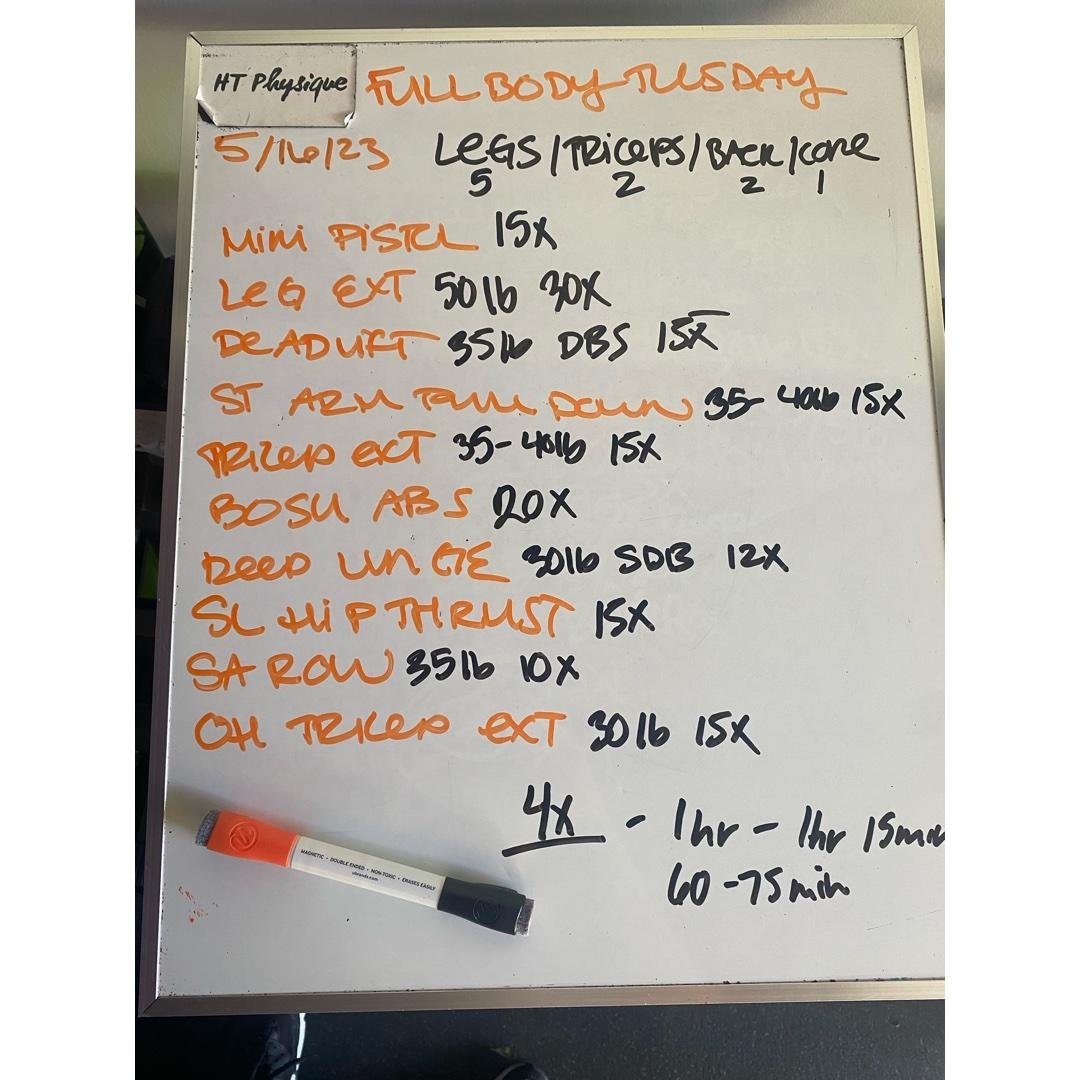 HT Physique FULL BODY TUESDAY
5/16/23 LEGS/TRICEPS/BACK/CORE
5 2 2 1
MINI PISTOL 15X
LEG EXT 50lb 30X
DEADLIFT 35lb DBS 15X
ST ARM PULL DOWN 35-40lb 15X
TRICEP EXT 35-40lb 15X
BOSU ABS 20X
DEEP LUNGE 30lb SDB 12X
SL HIP THRUST 15X
SA ROW 35lb 10X
OH TRICEP EXT 30lb 15X
4X - 1hr - 1hr 15min
60-75min
MAGNETIC • DOUBLE ENDED • NON-TOXIC • ERASES EASILY
ubrands.com